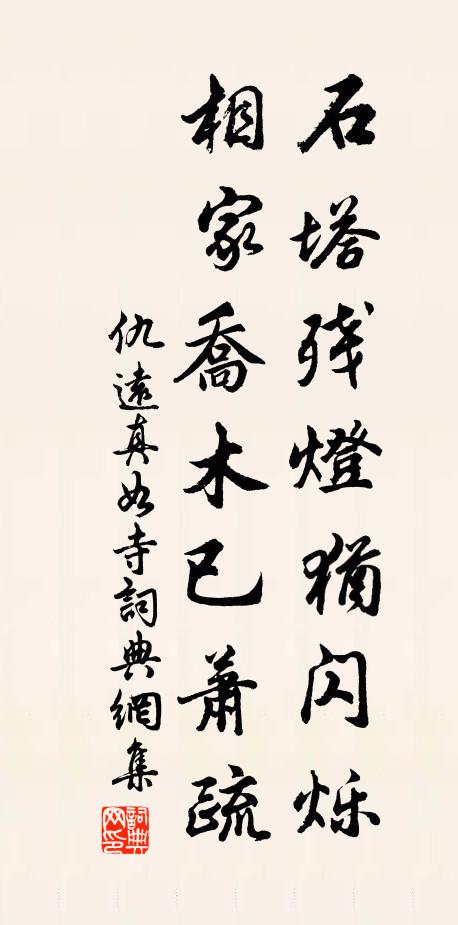 石塔残燈猶闪烁
相家喬木已蕭疏
仇遠真如寺詞典網集
詞典网印